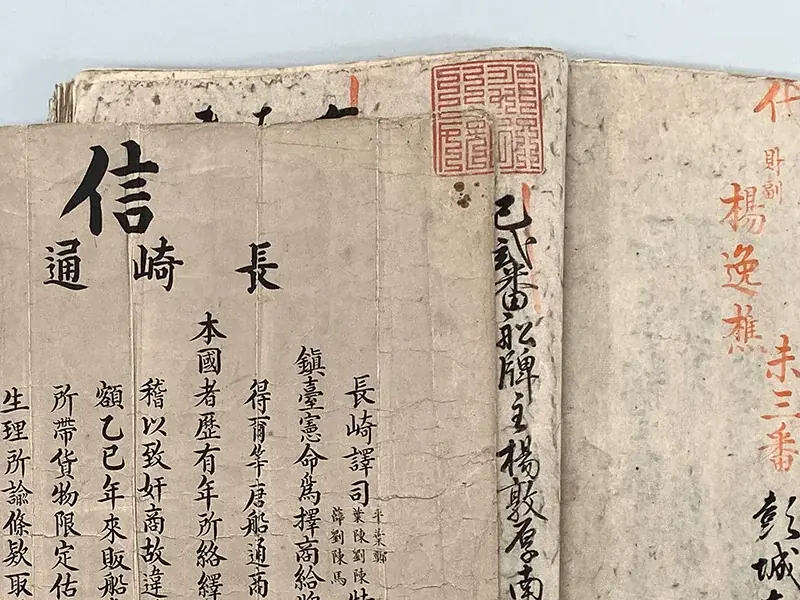 什
未三番
彭城
財副
楊逸樵
己弐番舩牌主楊敦厚南
信
長崎通
長崎譯司
平葉鄭
葉陳劉陳
薛劉陳馬
鎮臺憲命爲擇商給
得爾等唐船通商
本國者歷有年所絡繹
稽以致奸商故違
額乙巳年來販船
所帶貨物限定估
生理所諭條款取